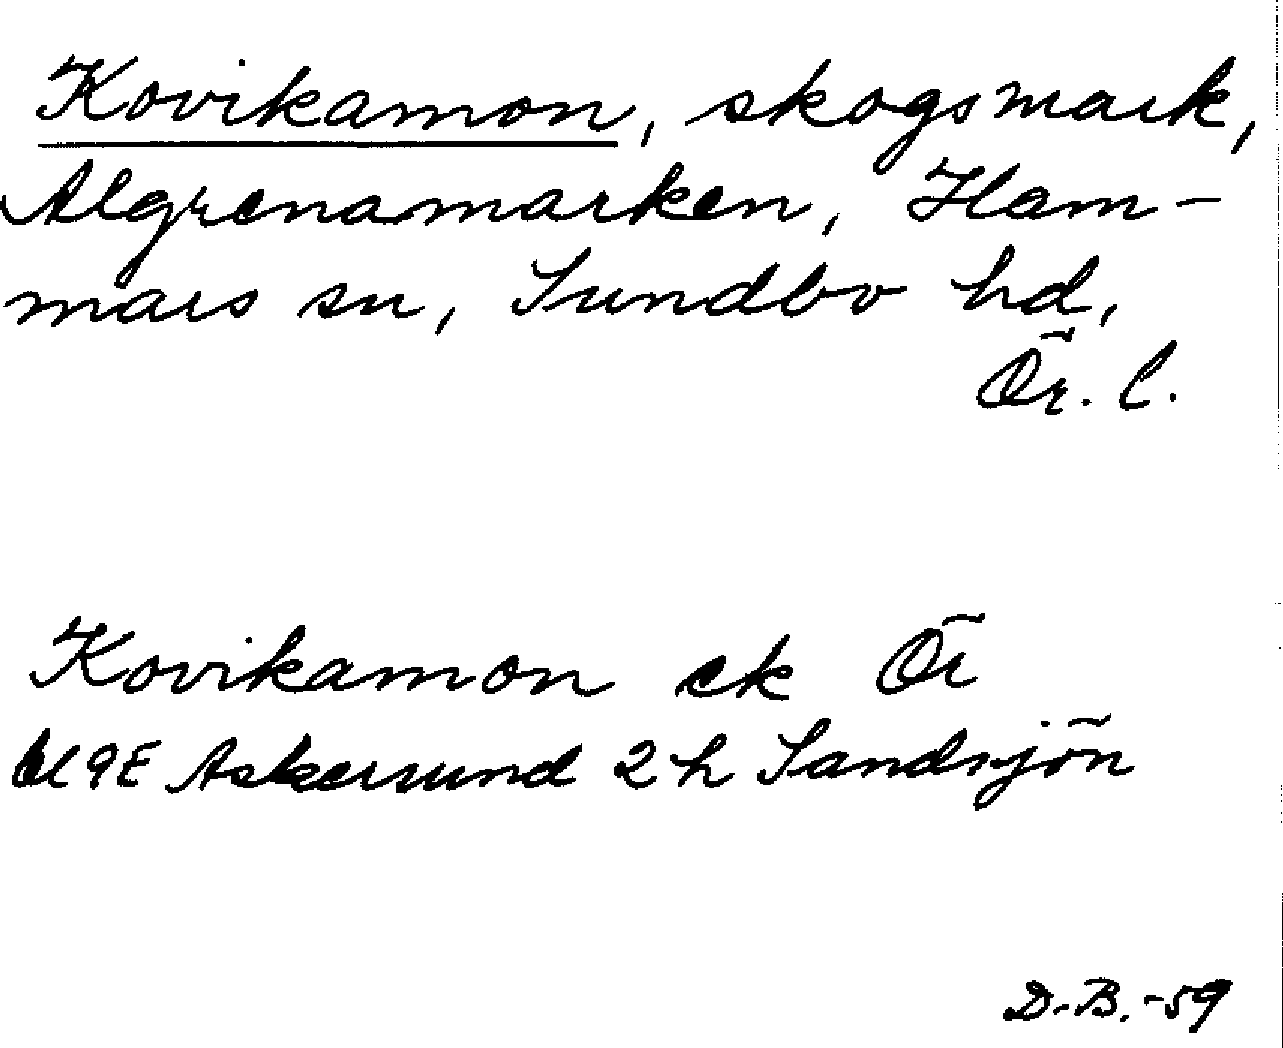 Kovikamon, skogsmark,
Algrenamarken, Ham-
mars sn, Sundbo hd,
Ör. l.
Kovikamon ek Ör
9E Askersund 2h Sandsjön
D.B.-59